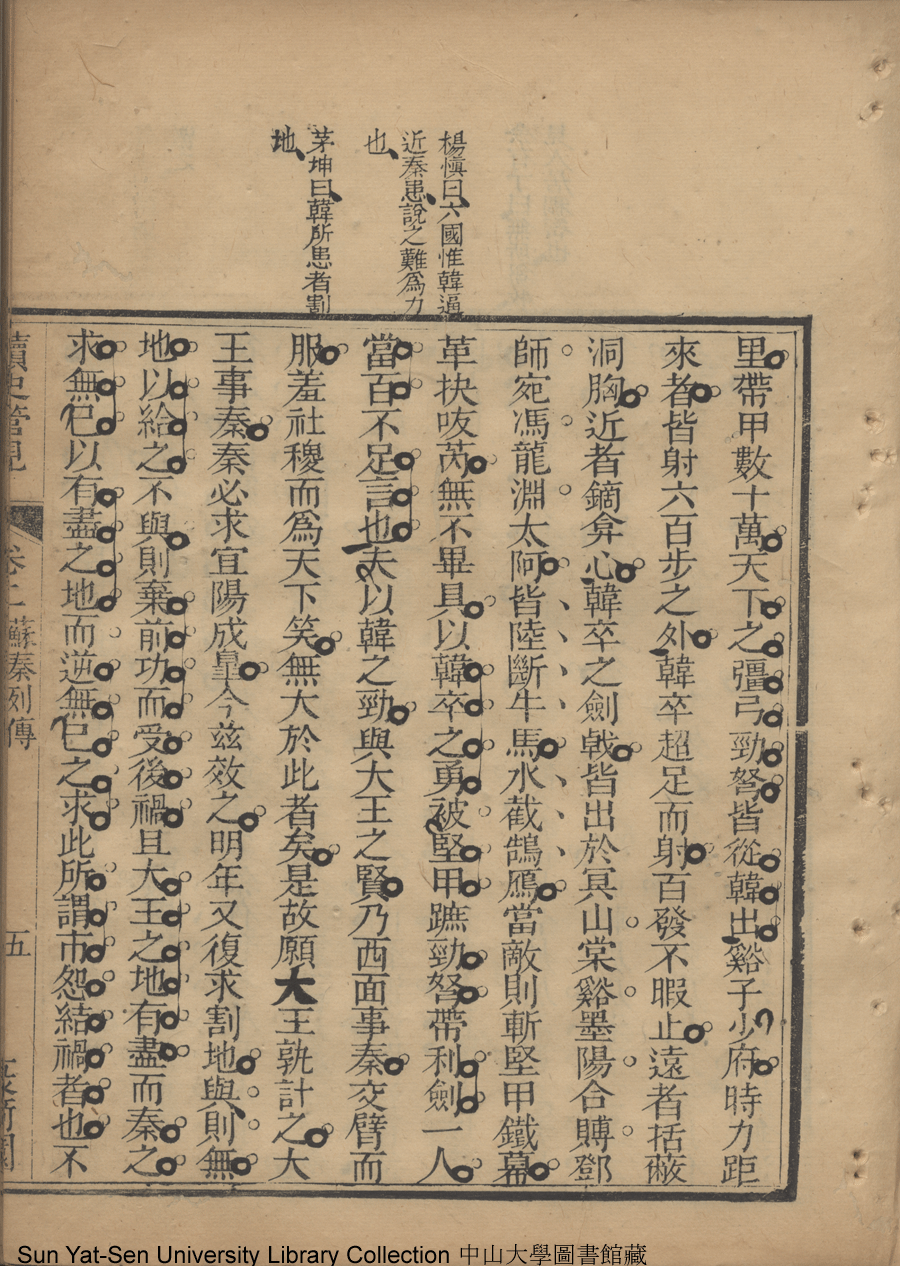 楊愼曰六國惟韓逼
近秦患說之難爲力
也
茅坤曰韓所患者割
地
里帶甲數十萬天下之彊弓勁弩皆從韓出谿子少府時力距
來者皆射六百步之外韓卒超足而射百發不暇止遠者括蔽
洞胸近者鏑弇心韓卒之劍戟皆出於冥山棠谿墨陽合賻鄧
師宛馮龍淵太阿皆陸斷牛馬水截鵠鴈當敵則斬堅甲鐵幕
革抉㕹芮無不畢具以韓卒之勇被堅甲蹠勁弩帶利劍一人
當百不足言也夫以韓之勁與大王之賢乃西面事秦交臂而
服羞社稷而爲天下笑無大於此者矣是故願大王孰計之大
王事秦秦必求宜陽成臯今兹效之明年又復求割地與則無
地以給之不與則棄前功而受後禍且大王之地有盡而秦之
求無已以有盡之地而逆無已之求此所謂市怨結禍者也不
讀史管見
卷二 蘇秦列傳
五
Sun Yat-Sen University Library Collection 中山大學圖書館藏